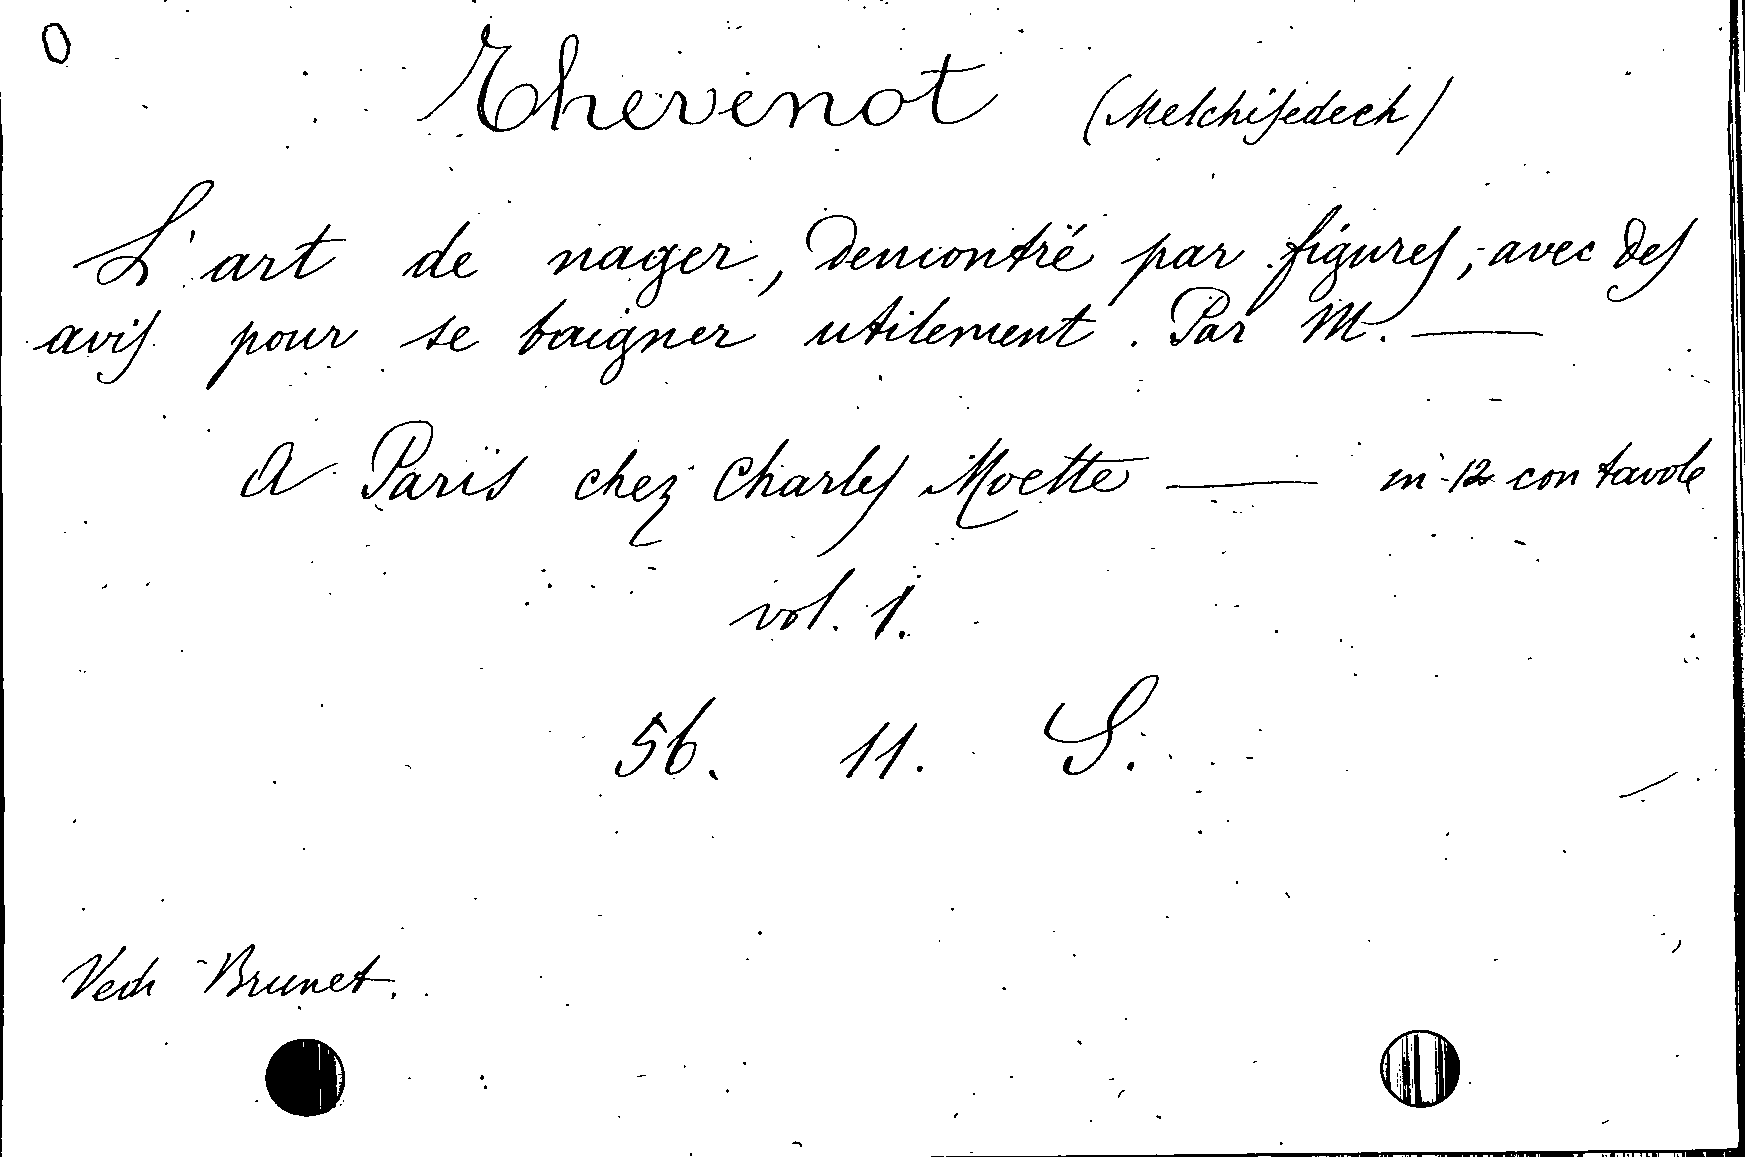 0
Thevenot (Melchisedech)
L'art de nager, demontré par figures, avec des
avis pour se baigner utilement. Par M. —
A Paris chez Charles Moette — in-12 con tavole
vol. 1.
56. 11. S.
Vedi Brunet.